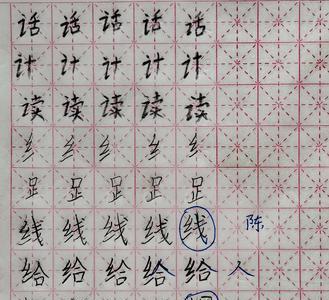 话 话 话 话 话
计 计 计 计 计
读 读 读 读 读
纟 纟 纟 纟 纟
足 足 足 足 足
线 线 线 线 线 陈
给 给 给 给 给 人